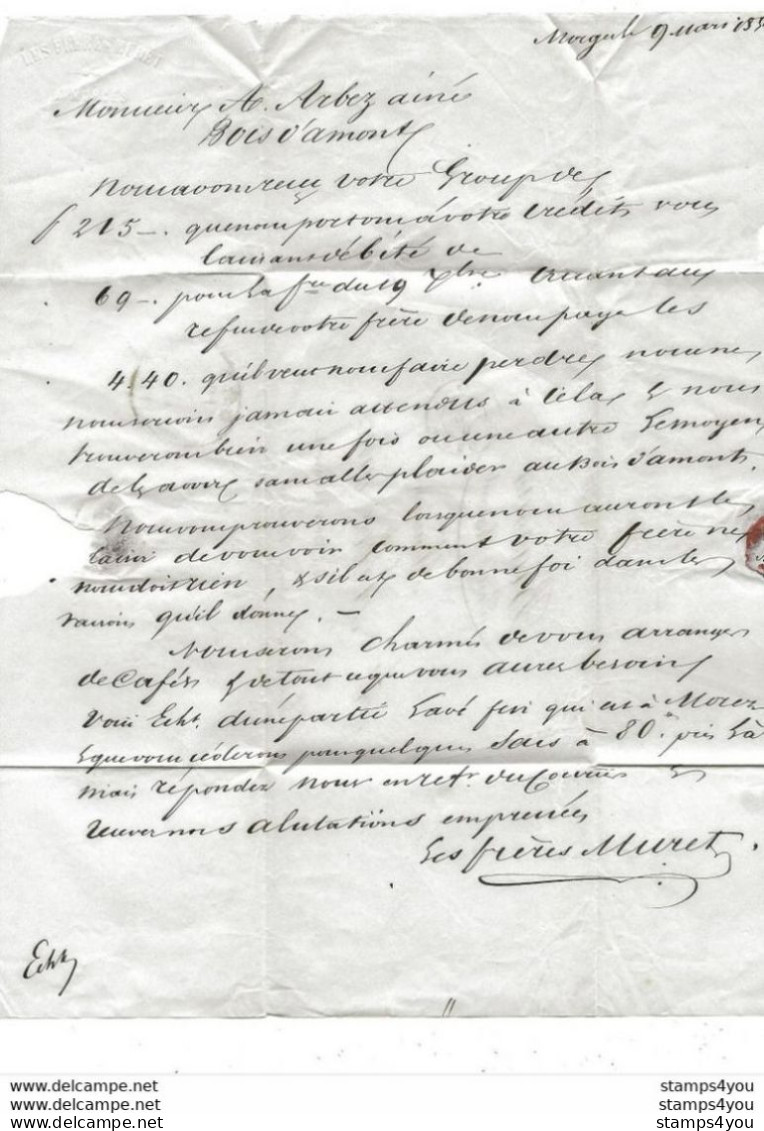 LES FRERES MURET
Morges le 9 mars 185
Monsieur A. Arbez ainé
Bois d'amont
Nous avons reçu votre Group de
f 215 –. que nous portons à votre crédit, vous
l'ayant débité de
69 –. pour la fre du 19 7bre. Quant au
refus de votre frère de nous payer les
4.40. qu'il veut nous faire perdre, nous ne
nous serions jamais attendus à cela & nous
trouverons bien une fois ou une autre le moyen
de les avoir sans aller plaider au Bois d'amont.
Nous vous prouverons lorsque nous aurons le
plaisir de vous voir comment votre frère ne
nous doit rien, & s'il est de bonne foi dans les
raisons qu'il donne. –
Nous serons charmés de vous arranger
de Cafés & de tout ce que vous aurez besoin
Voici Echt. d'une partie Lavé fin qui est à Morez
& que vous céderons pour quelques Sacs à 80. pris là
mais répondez nous en ret. du Courrier &
recevez nos salutations empressées
Les frères Muret
Echt
www.delcampe.net stamps4you
www.delcampe.net stamps4you
www.delcampe.net stamps4you